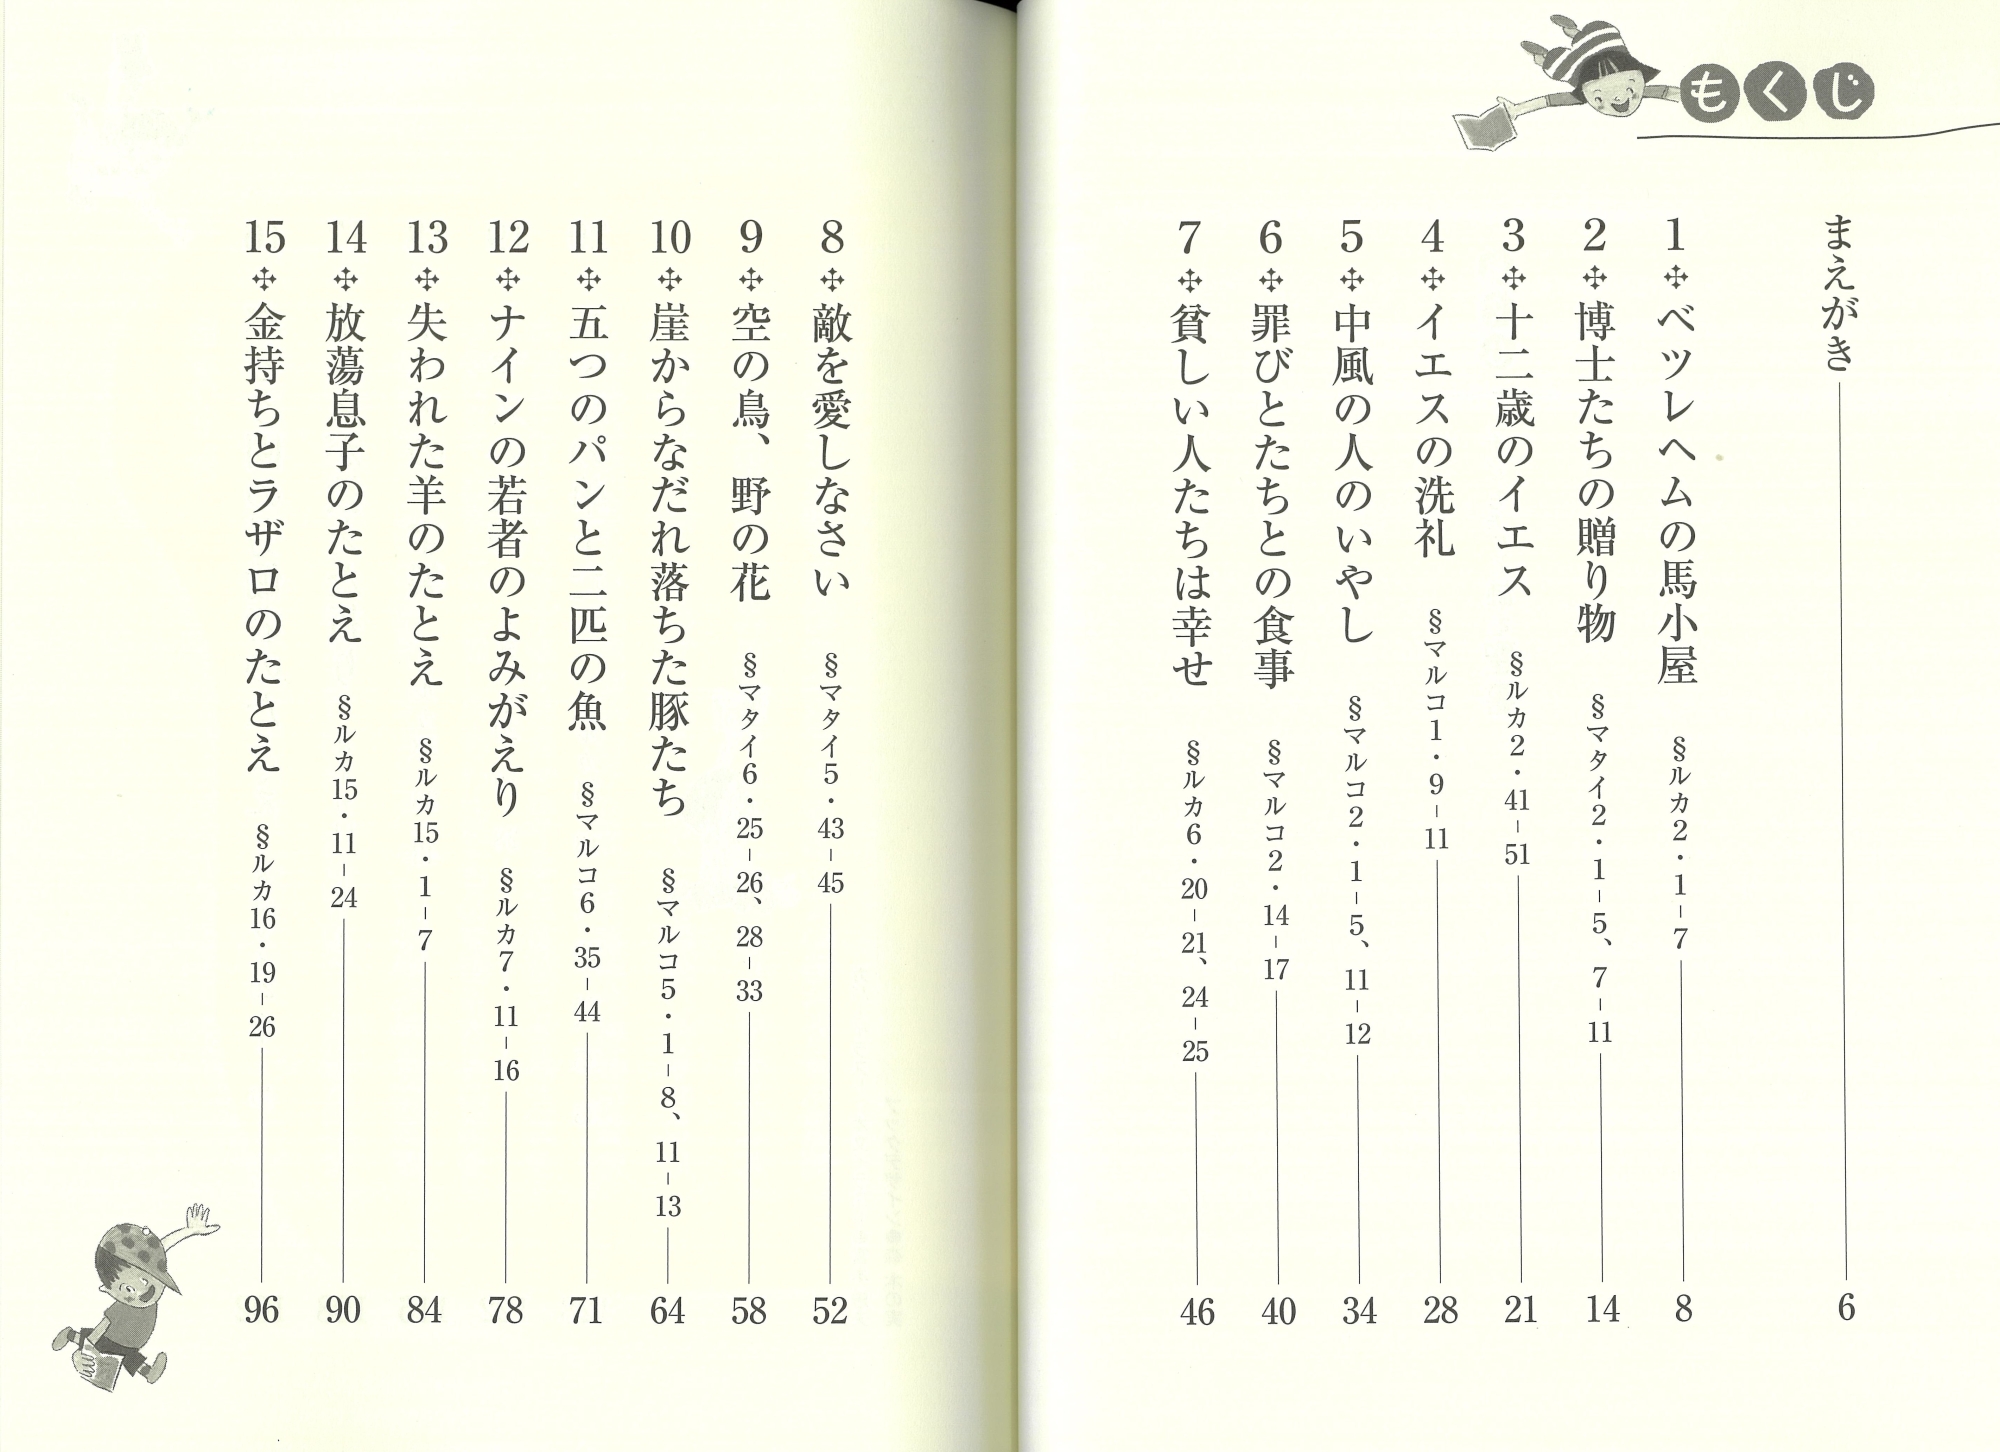 もくじ
まえがき 6
1 ベツレヘムの馬小屋 §ルカ2・1-7 8
2 博士たちの贈り物 §マタイ2・1-5、7-11 14
3 十二歳のイエス §ルカ2・41-51 21
4 イエスの洗礼 §マルコ1・9-11 28
5 中風の人のいやし §マルコ2・1-5、11-12 34
6 罪びとたちとの食事 §マルコ2・14-17 40
7 貧しい人たちは幸せ §ルカ6・20-21、24-25 46
8 敵を愛しなさい §マタイ5・43-45 52
9 空の鳥、野の花 §マタイ6・25-26、28-33 58
10 崖からなだれ落ちた豚たち §マルコ5・1-8、11-13 64
11 五つのパンと二匹の魚 §マルコ6・35-44 71
12 ナインの若者のよみがえり §ルカ7・11-16 78
13 失われた羊のたとえ §ルカ15・1-7 84
14 放蕩息子のたとえ §ルカ15・11-24 90
15 金持ちとラザロのたとえ §ルカ16・19-26 96